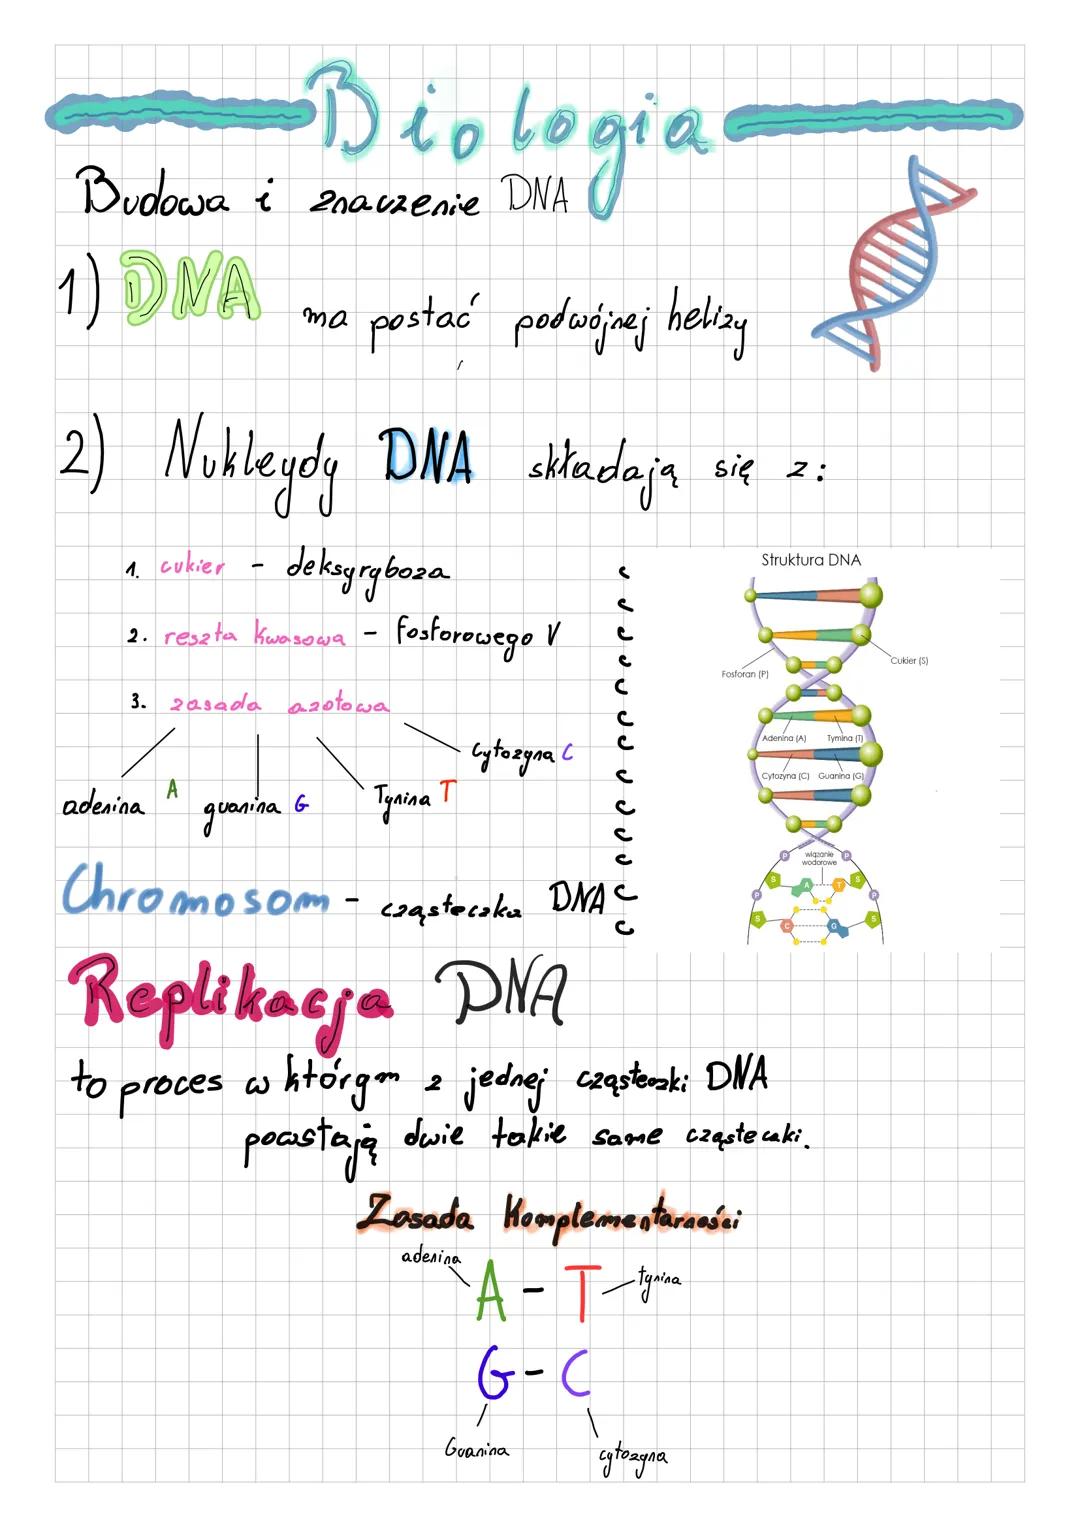 Biologia
Budowa i znaczenie DNA
1) DNA ma postać podwójnej helizy
2) Nukleydy DNA składają się z:
1. cukier - deksyryboza
2. reszta kwasowa - fosforowego V
3. zasada azotowa
adenina A guanina G Tynina T Cytozyna C
Chromosom - cząsteczka DNA
Struktura DNA
Fosforan (P)
Cukier (S)
Adenina (A) Tymina (T)
Cytozyna (C) Guanina (G)
wiązanie
wodorowe
P P
S A T S
P P
S C G S
Replikacja DNA
to proces w którym z jednej cząsteczki DNA
powstają dwie takie same cząsteczki.
Zasada Komplementarności
adenina A - T tynina
G - C
Guanina cytozyna